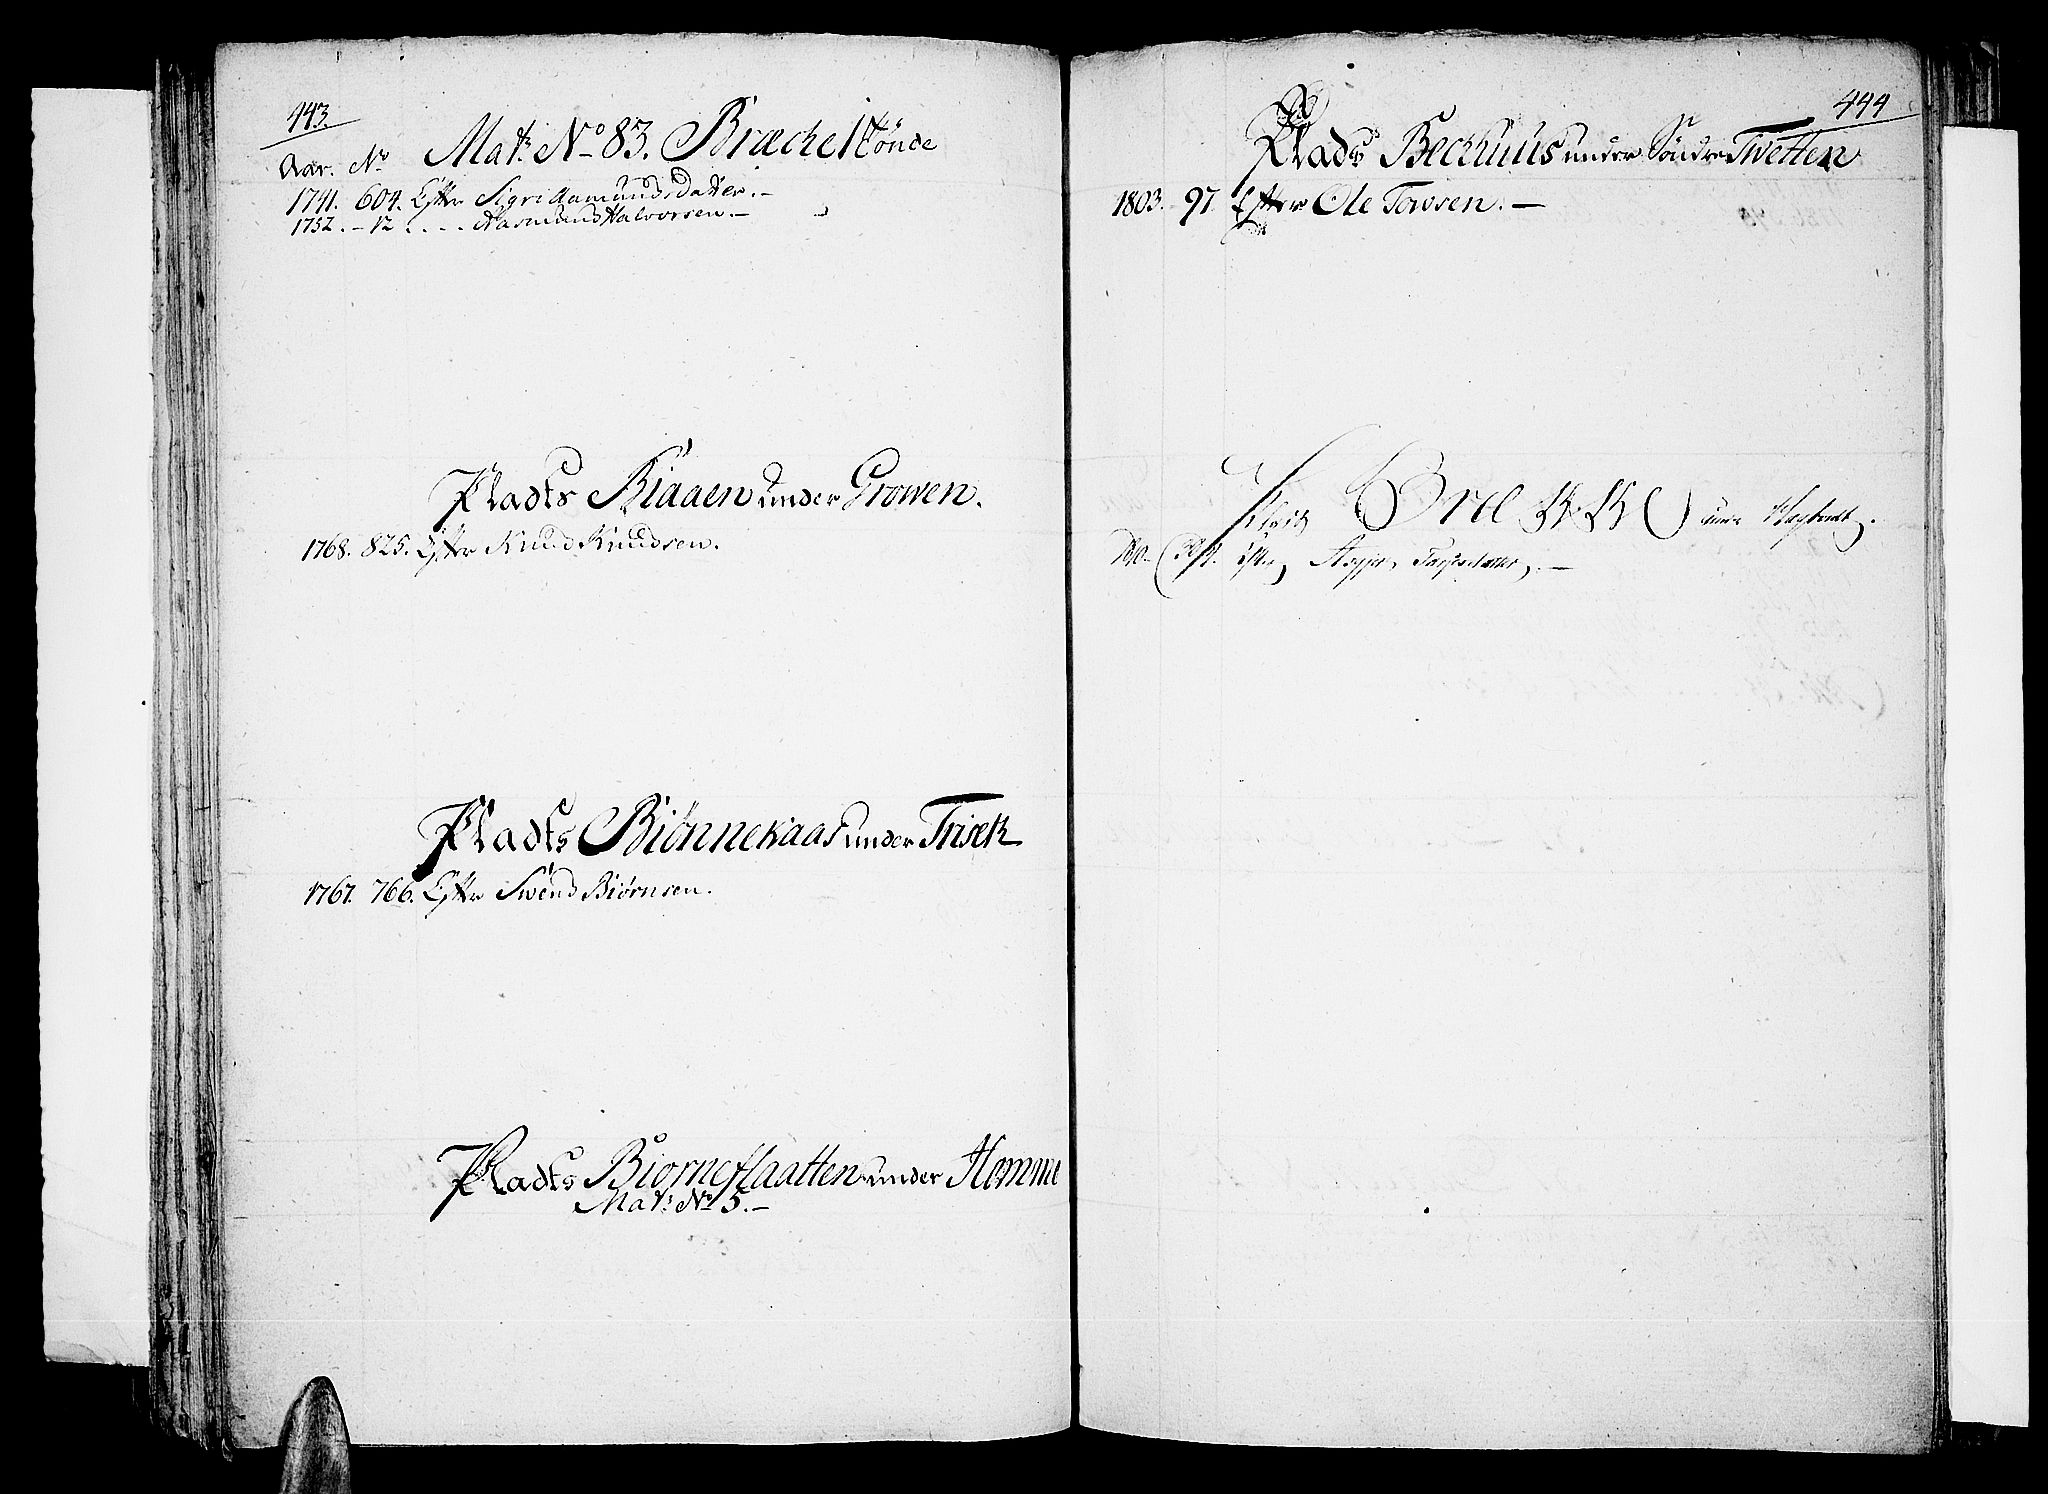 443.
Mat: No 83. Bræchestönde
Aar. No
1741. 604. Efter Sigri Aamunds Datter. –
1752. – 12 . . . . Aasmund Halvorsen. –
Pladts Biaaen under Growen.
1768. 825. Efter Knud Knudsen.
Pladts Biönnekaas under Trisek
1767. 766. Efter Swend Biörnsen.
Pladts Biorneflaatten under Homme
Mat: No 5. –
444
Plads Bechuus under Söndre Twetten
1803. 97. Efter Ole Tovsen. –
Plads under
Efter